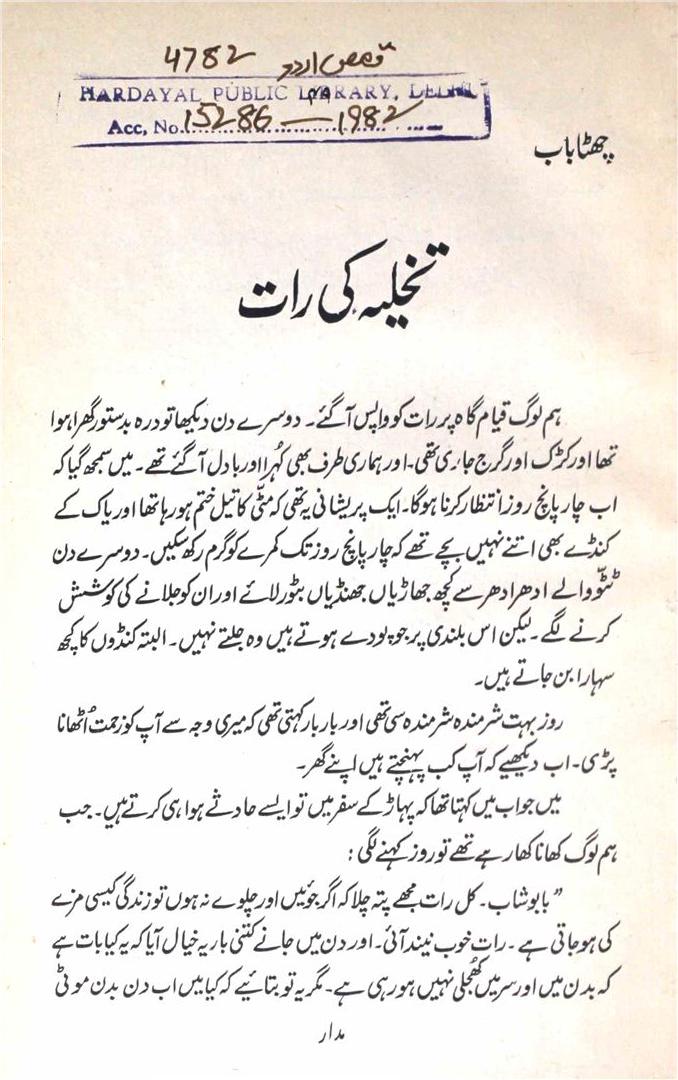 4782 قصص اردو
HARDAYAL PUBLIC LIBRARY, DELHI
Acc, No. 15286 — 1982
چھٹا باب
تخلیہ کی رات
ہم لوگ قیام گاہ پر رات کو واپس آگئے۔ دوسرے دن دیکھا تو درہ بدستور گھرا ہوا
تھا اور کڑک اور گرج جاری تھی۔ اور ہماری طرف بھی کُہرا اور بادل آگئے تھے۔ میں سمجھ گیا کہ
اب چار پانچ روز انتظار کرنا ہوگا۔ ایک پریشانی یہ تھی کہ مٹّی کا تیل ختم ہو رہا تھا اور یاک کے
کنڈے بھی اتنے نہیں بچے تھے کہ چار پانچ روز تک کمرے کو گرم رکھ سکیں۔ دوسرے دن
ٹٹّو والے ادھر ادھر سے کچھ جھاڑیاں جھنڈیاں بٹور لائے اور ان کو جلانے کی کوشش
کرنے لگے۔ لیکن اس بلندی پر جو پودے ہوتے ہیں وہ جلتے نہیں۔ البتہ کنڈوں کا کچھ
سہارا بن جاتے ہیں۔
روز بہت شرمندہ شرمندہ سی تھی اور بار بار کہتی تھی کہ میری وجہ سے آپ کو زحمت اُٹھانا
پڑی۔ اب دیکھیے کہ آپ کب پہنچتے ہیں اپنے گھر۔
میں جواب میں کہتا تھا کہ پہاڑ کے سفر میں تو ایسے حادثے ہوا ہی کرتے ہیں۔ جب
ہم لوگ کھانا کھا رہے تھے تو روز کہنے لگی :
”بابو شاب۔ کل رات مجھے پتہ چلا کہ اگر جوئیں اور چلوے نہ ہوں تو زندگی کیسی مزے
کی ہوجاتی ہے۔ رات خوب نیند آئی۔ اور دن میں جانے کتنی بار یہ خیال آیا کہ یہ کیا بات ہے
کہ بدن میں اور سر میں کھُجلی نہیں ہو رہی ہے۔ مگر یہ تو بتائیے کہ کیا میں اب دن بدن موٹی
مدار